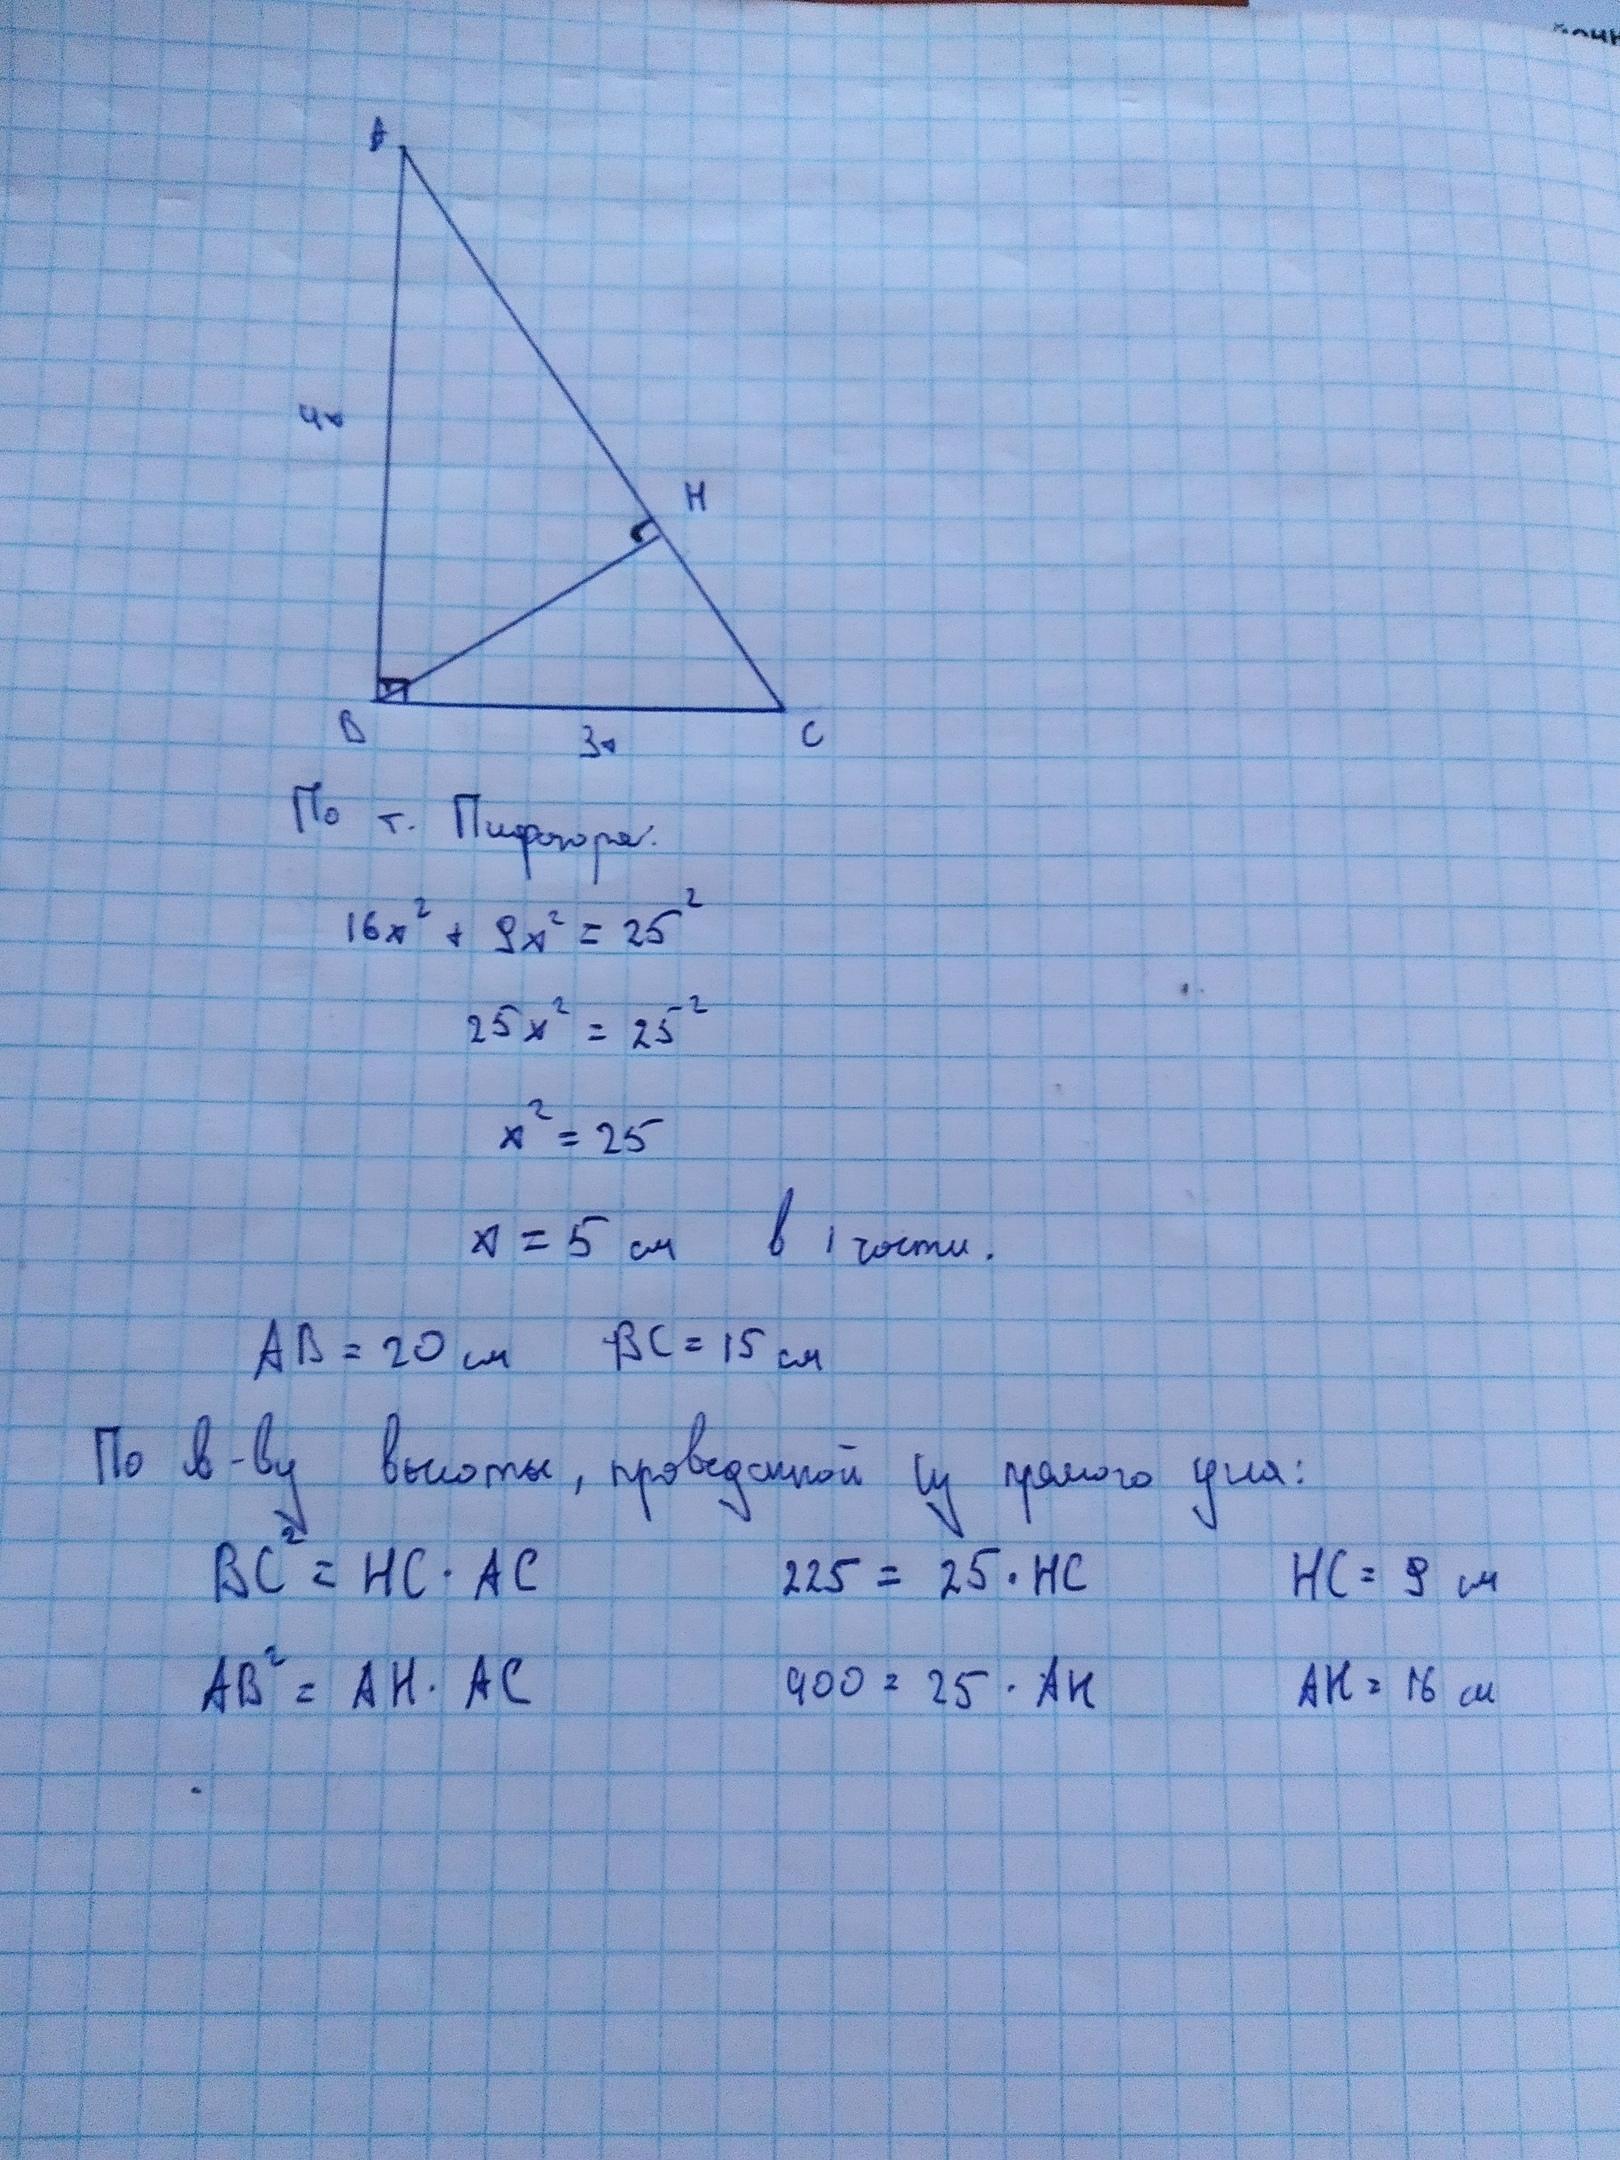 A
4x
H
B
3x
C
По т. Пифагора:
16x² + 9x² = 25²
25x² = 25²
x² = 25
x = 5 см в 1 части.
AB = 20 см BC = 15 см
По св-ву высоты, проведенной из прямого угла:
BC² = HC · AC 225 = 25 · HC HC = 9 см
AB² = AH · AC 400 = 25 · AH AH = 16 см